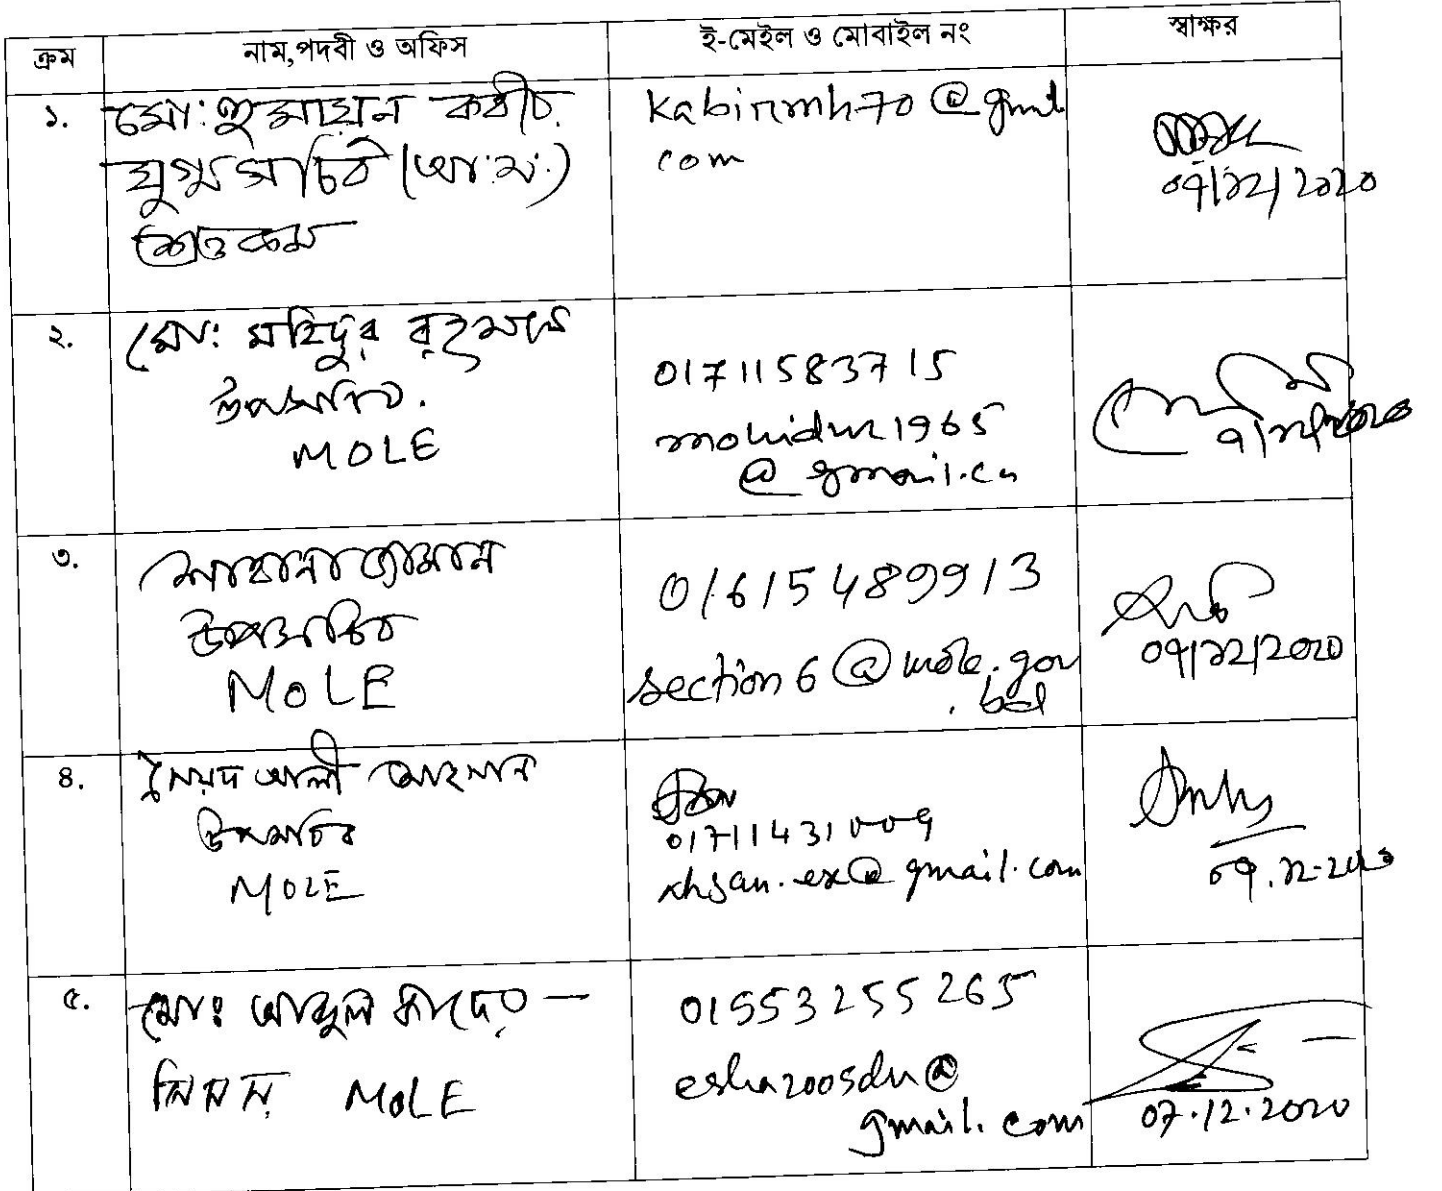 ক্রম
নাম,পদবী ও অফিস
ই-মেইল ও মোবাইল নং
স্বাক্ষর
১.
মো: হুমায়ুন কবীর
যুগ্মসচিব (আ:স:)
kabirmh70@gmail
com
০৭/১২/২০২০
২.
মো: মহিদুর রহমান
উপসচিব.
MOLE
01711583715
mohidur1965
@gmail.com
৭/১২/২০২০
৩.
উপসচিব
MoLE
01615489913
section6@mole.gov
.bd
০৭/১২/২০২০
৪.
সৈয়দ আলী আহসান
উপসচিব
MOLE
01711431009
ahsan.ex@gmail.com
০৭.১২.২০২০
৫.
মোঃ আব্দুল কাদের -
সিসস, MoLE
01553255265
esha2005du@
gmail.com
07.12.2020